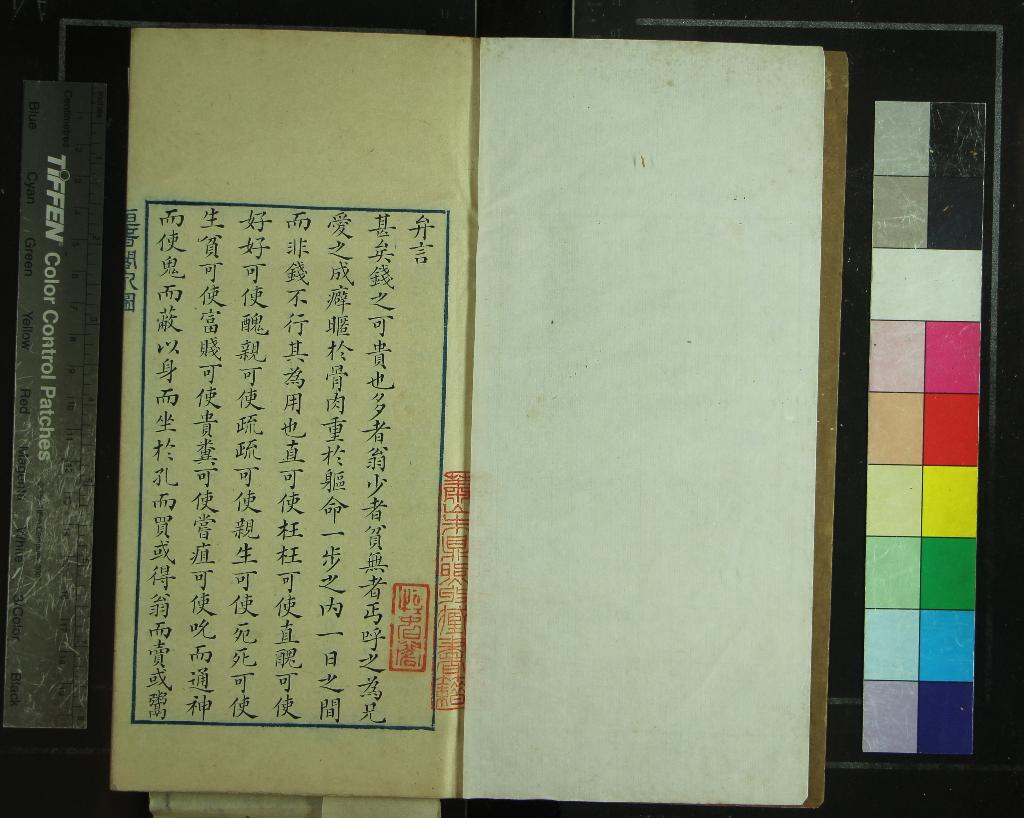 弁言
甚矣錢之可貴也多者翁少者貧無者丐呼之為兄
愛之成癖暱於骨肉重於軀命一步之內一日之間
而非錢不行其為用也直可使枉枉可使直醜可使
好好可使醜親可使疏疏可使親生可使死死可使
生貧可使富賤可使貴糞可使嘗疽可使吮而通神
而使鬼而蔽以身而坐於孔而買或得翁而賣或鬻
TIFFEN Color Control Patches
Centimetres
Inches
Blue
Cyan
Green
Yellow
Red
Magenta
White
3/Color
Black